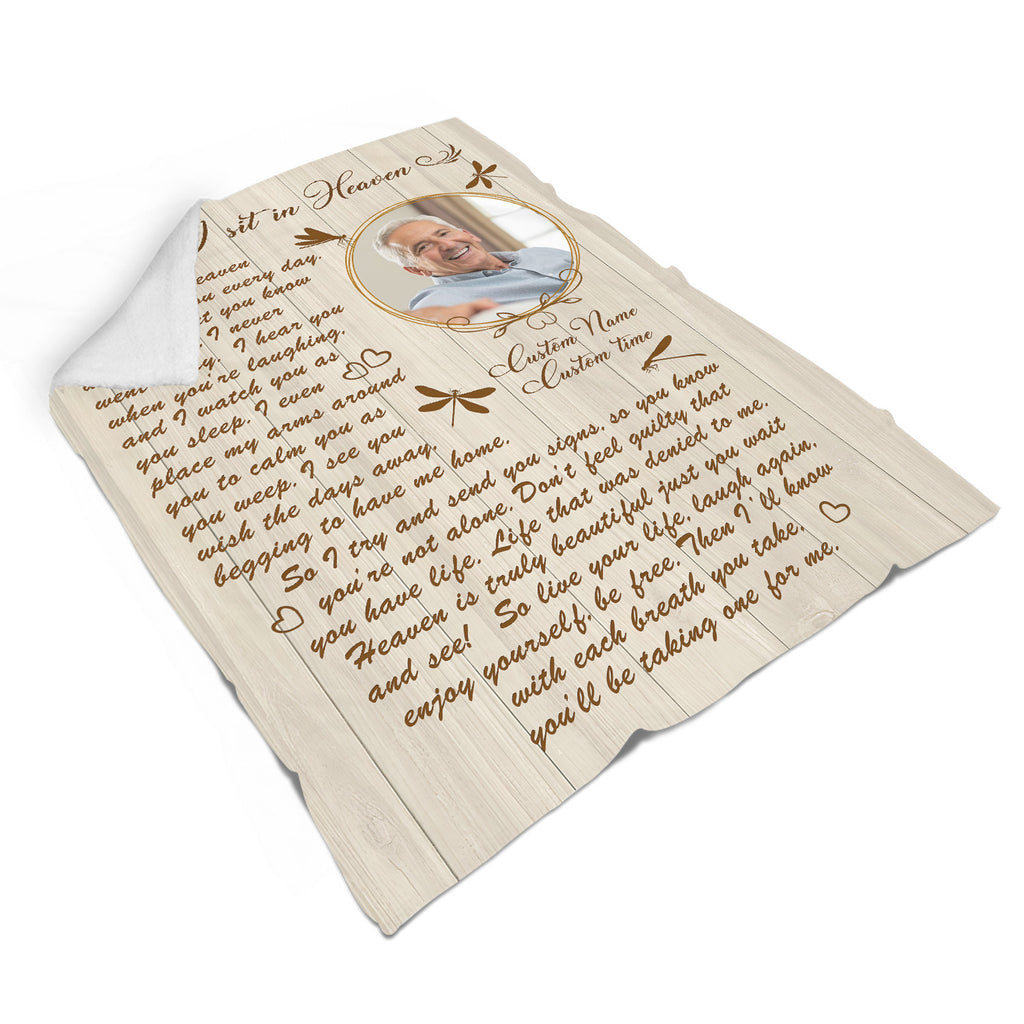 I sit in Heaven
Heaven
you every day.
let you know
I never
went away. I hear you
when you're laughing,
and I watch you as
you sleep. I even
place my arms around
you to calm you as
you weep. I see you
wish the days away,
begging to have me home.
Custom Name
Custom time
So I try and send you signs, so you know
you're not alone. Don't feel guilty that
you have life. Life that was denied to me.
Heaven is truly beautiful just you wait
and see! So live your life, laugh again,
enjoy yourself, be free. Then I'll know
with each breath you take,
you'll be taking one for me.